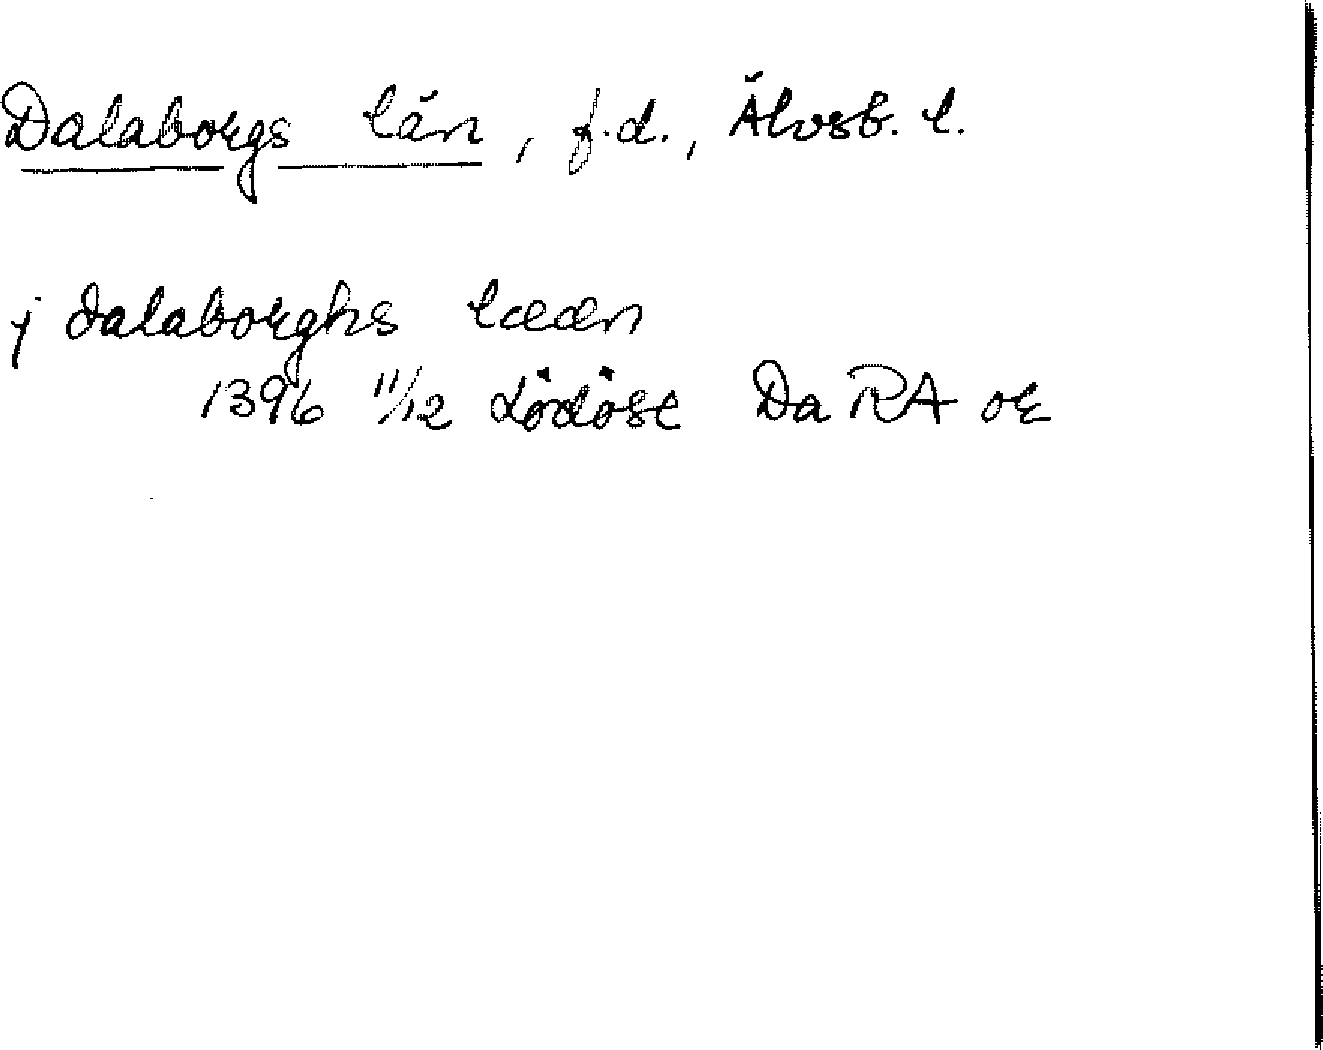 Dalaborgs län, f.d., Älvsb. l.
j dalaborghs lææn
1396 11/12 Lödöse Da RA or